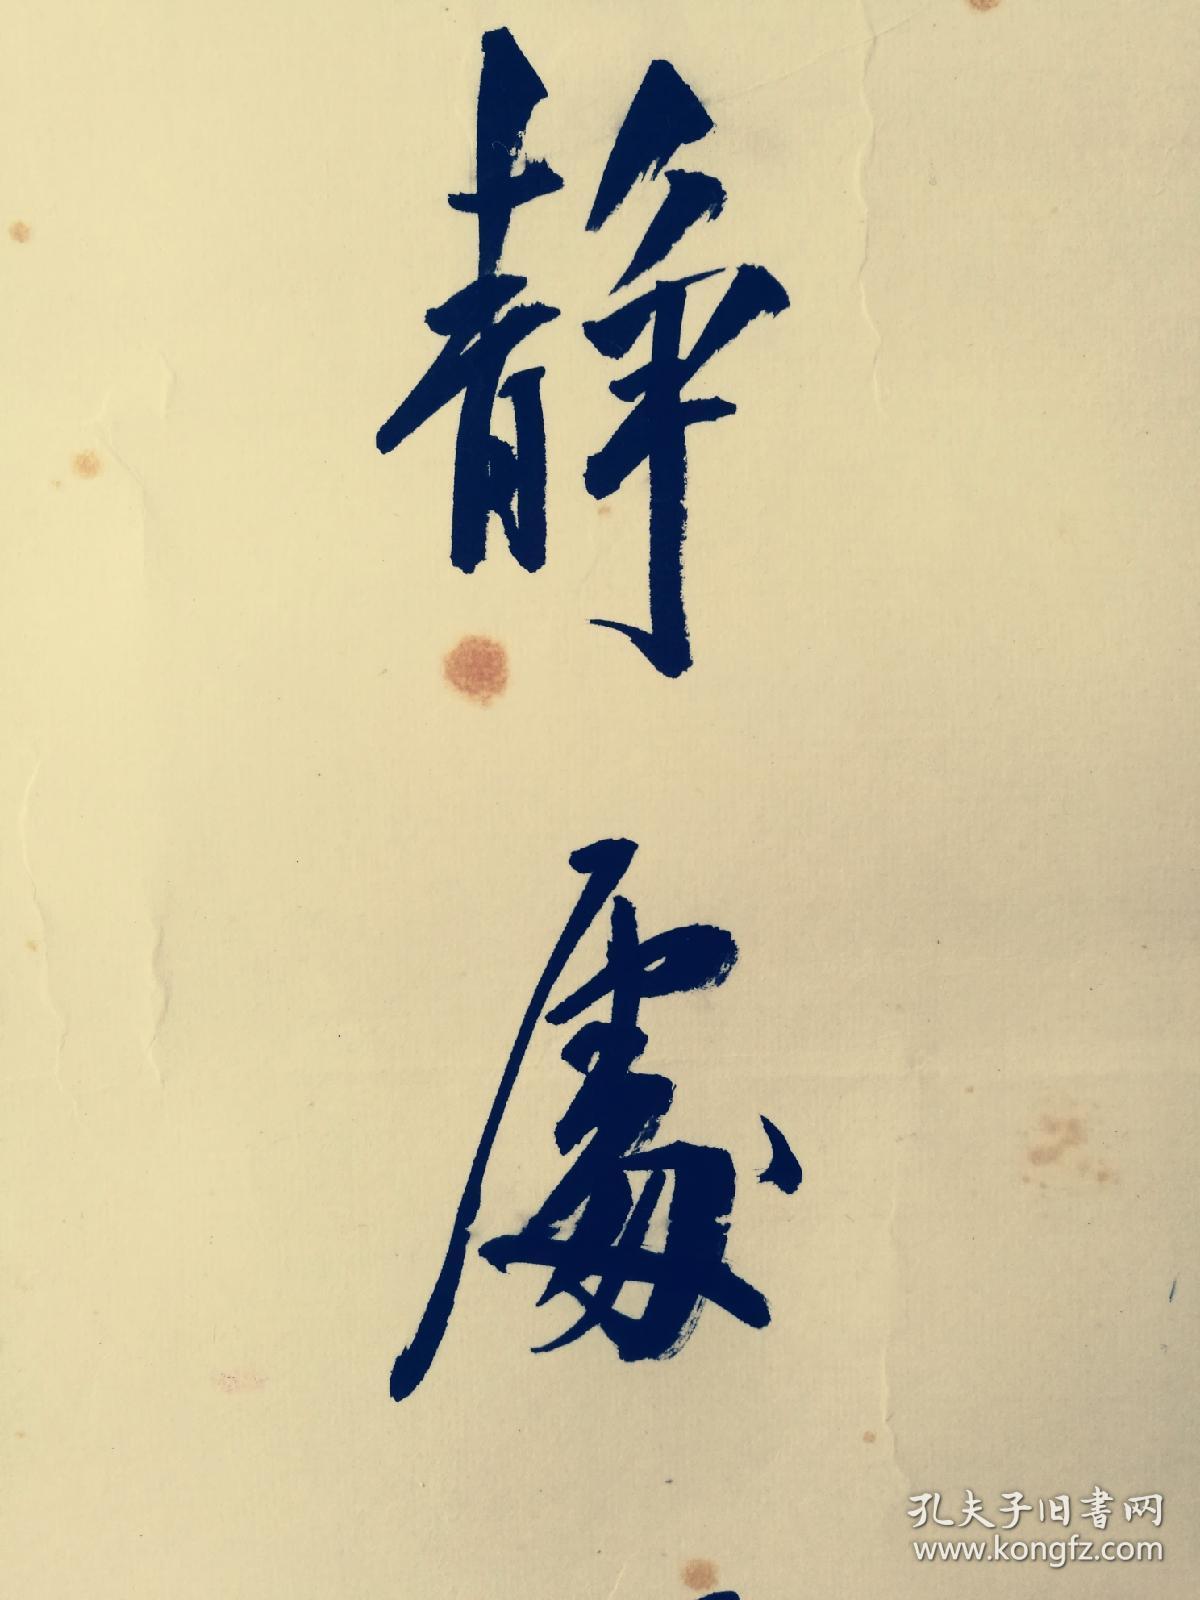 靜
處
孔夫子旧書网
www.kongfz.com